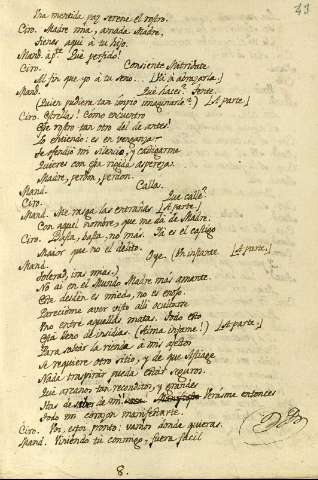 43
Una mentida paz serene el rostro.
Ciro. Madre mia, amada Madre,
Tienes aqui à tu hijo.
Mand. à pte. Què perfido!
Consiente Mitridate
Al fin que yo à tu seno... [Và à abrazarla.]
Mand. Què haces? Tente.
(Quien pudiera tan impio imaginarle?) [A parte.]
Ciro. Estrella! Como encuentro
Ese rostro tan otro del de antes!
Lo entiendo: es en venganza
Se ofendiò mi silencio, y castigarme
Quieres con esta rigida aspereza.
Madre, perdon, perdon.
Mand. Calla.
Ciro. Que calle?
Mand. Me rasga las entrañas [A parte.]
Con aquel nombre, que me dà de Madre.
Ciro. Basta, basta, no mas. Ya es el castigo
Maior que no el delito.
Mand. Oye. (Un instante [A parte.]
Tolerad, iras mias.)
No ai en el Mundo Madre mas amante.
Este desden es miedo, no es enojo.
Pareciòme aver visto alli ocultarse
Uno entre aquellas matas. Todo esto
Està lleno de insidias. (Alma infame!) [A parte.]
Para soltar la rienda à mis afectos
Se requiere otro sitio, y de que Astiage
Nada traspirar pueda estàr seguros.
Què arcanos tan reconditos, y grandes
Has de de mi! Veràsme entonces
Todo mi corazon manifestarte.
Ciro. Voi, estoi pronto: vamos donde quieras.
Mand. Viniendo tu conmigo, fuera facil
8.